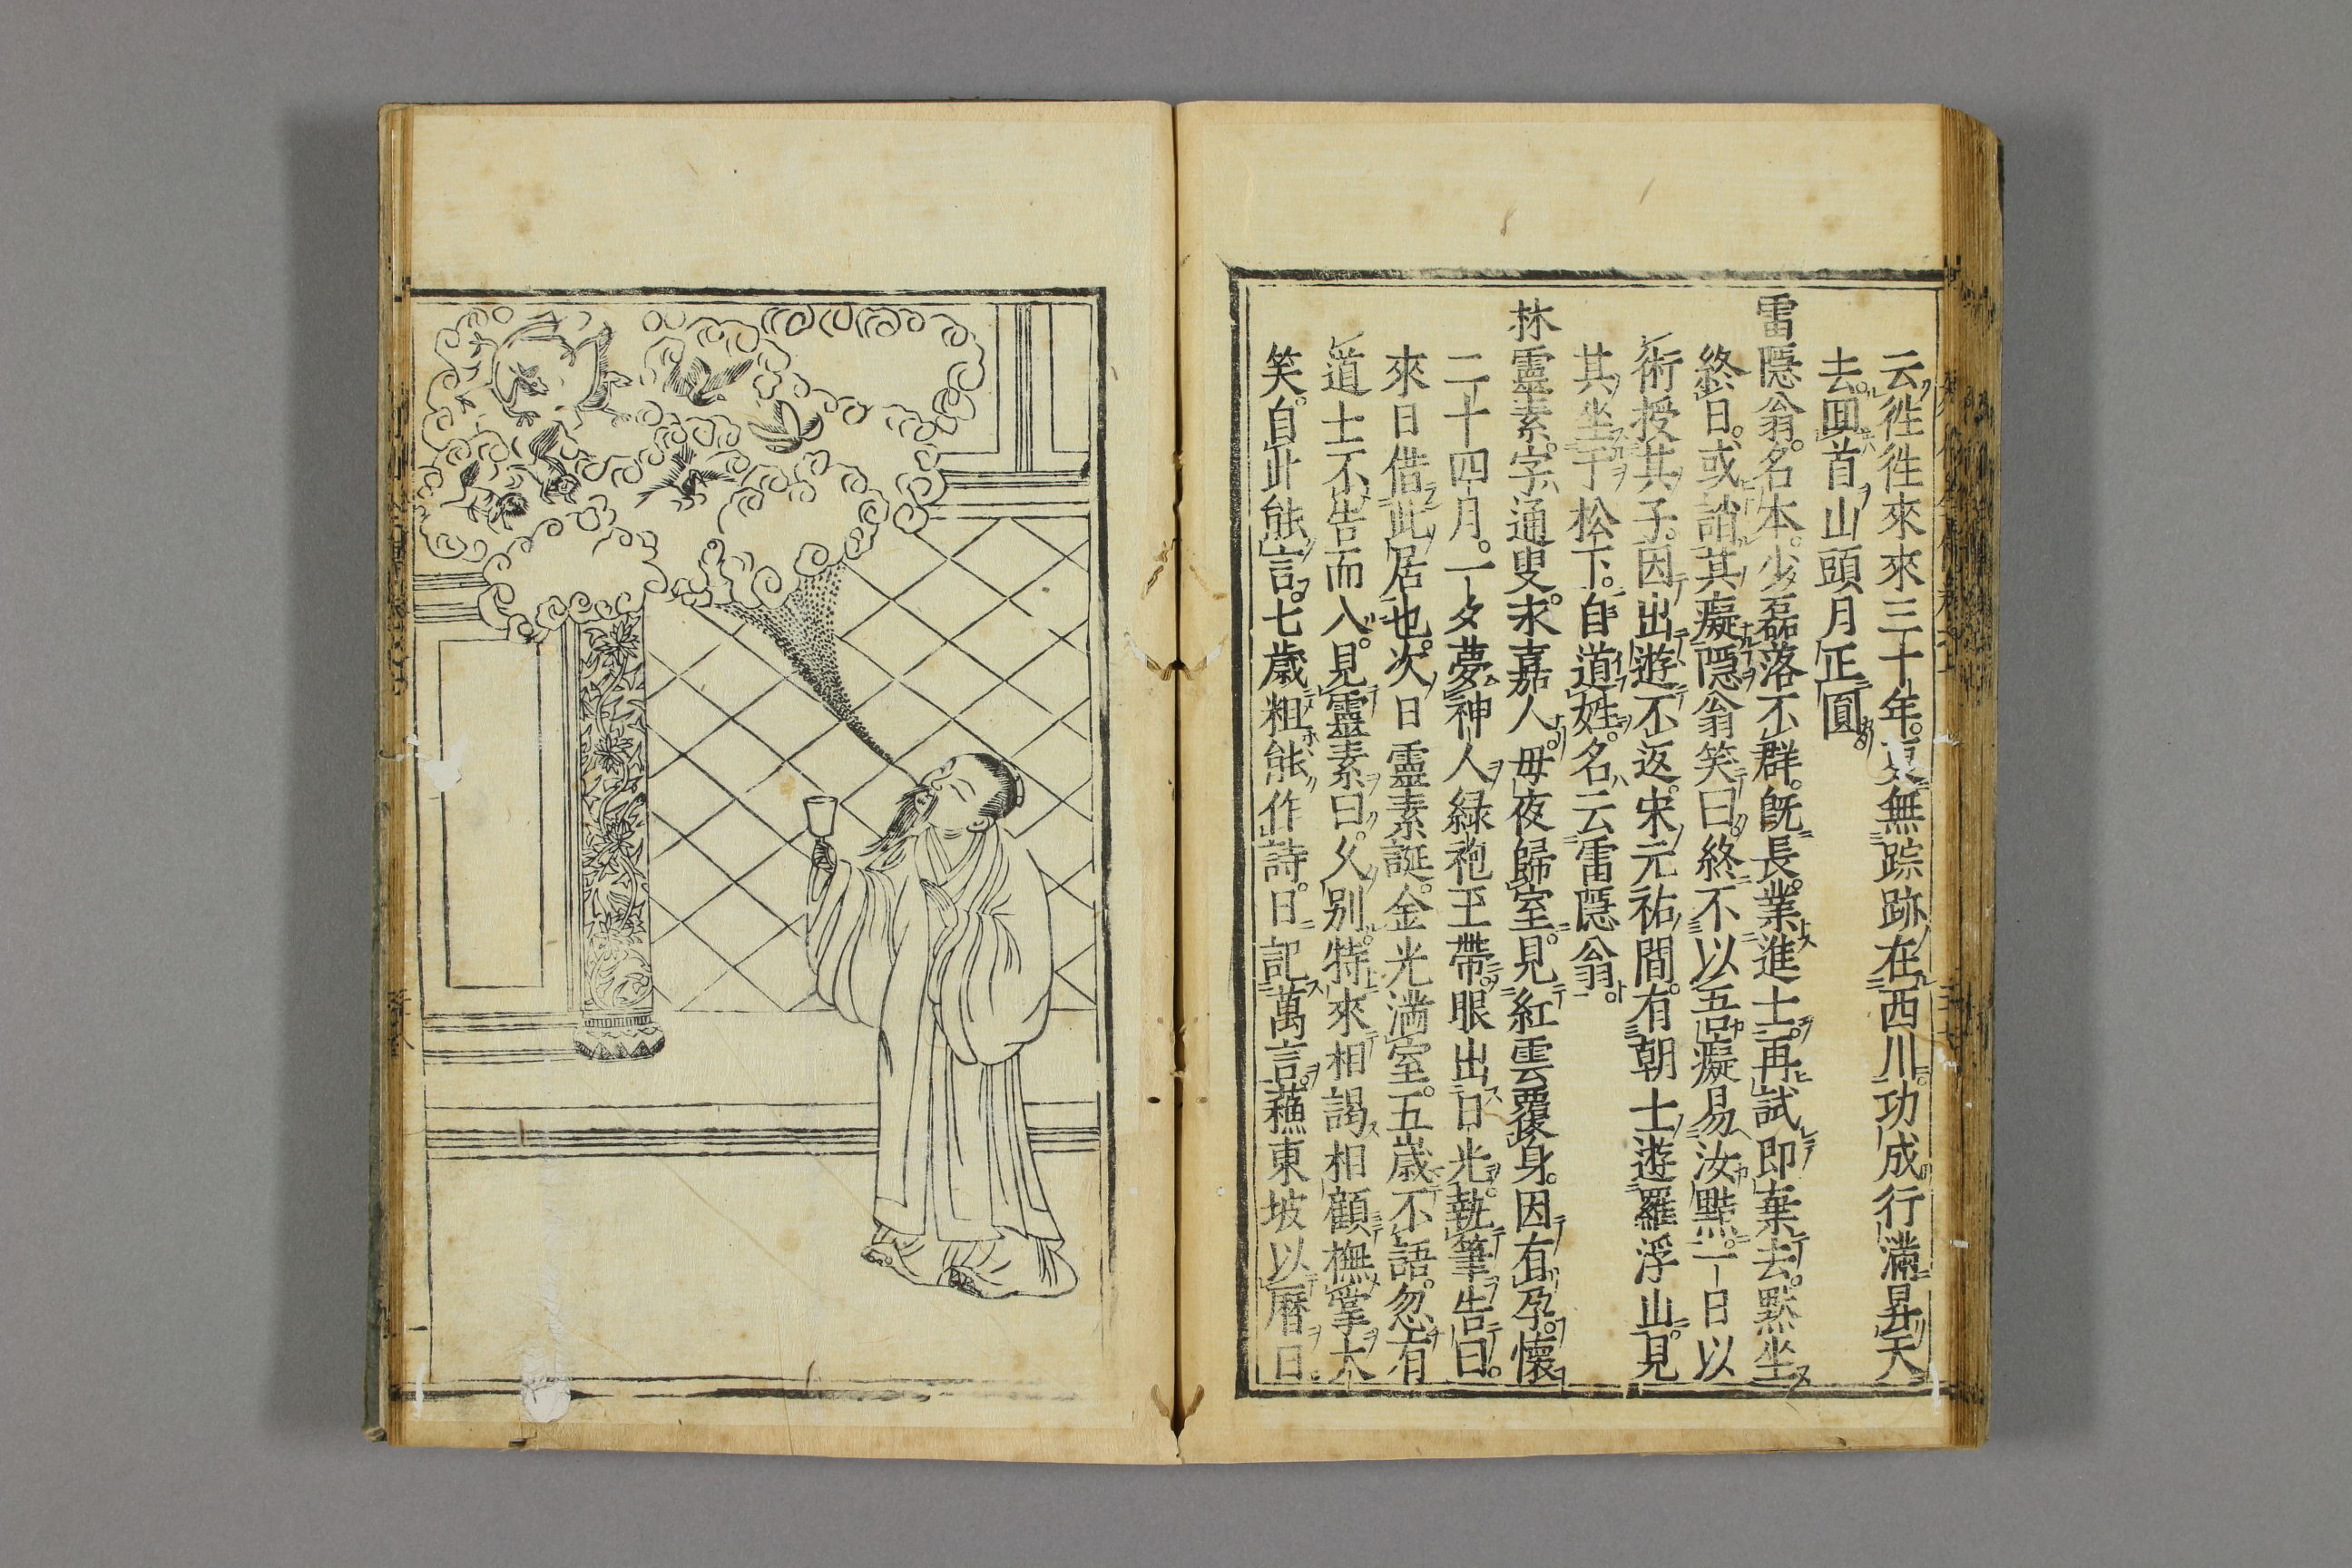 云徃徃來來三十年。更無踪跡在西川。功成行滿昇天
去。囬首山頭月正圓
雷隱翁。名本。少磊落不群。旣長。業進士。再試即棄去。黙坐
終日。或誚其癡隱翁笑曰。終不以吾癡易汝黠。一日以
術授其子。因出遊不返。宋元祐間。有朝士遊羅浮山。見
其坐于松下。自道姓。名云雷隱翁。
林靈素。字通叟。永嘉人。母夜歸室。見紅雲覆身。因有孕。懷
二十四月。一夕夢神人緑袍玉帶。眼出日光。執筆告曰。
來日借此居也。次日靈素誕。金光滿室。五歲不語。忽有
道士不告而入。見靈素曰。久別。特來相謁相顧撫掌大
笑。自此能言。七歲粗能作詩。日記萬言。蘓東坡以曆日